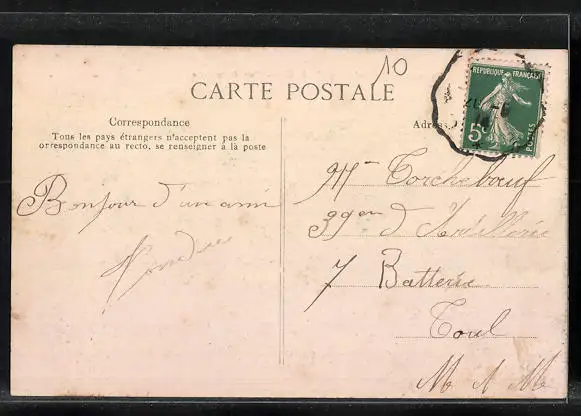 10
CARTE POSTALE
RÉPUBLIQUE FRANÇAISE
5c
POSTES
Correspondance
Tous les pays étrangers n'acceptent pas la
orrespondance au recto, se renseigner à la poste
Adres
Bonjour d'un ami
Mr Torcheboeuf
39em d'Artillerie
7 Batterie
Toul
M & M